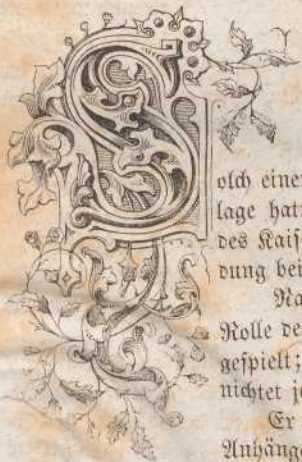 Solch eine
lage hat
des Kais
dung bei
Na
Rolle de
gespielt;
nichtet je
Er
Anhänge